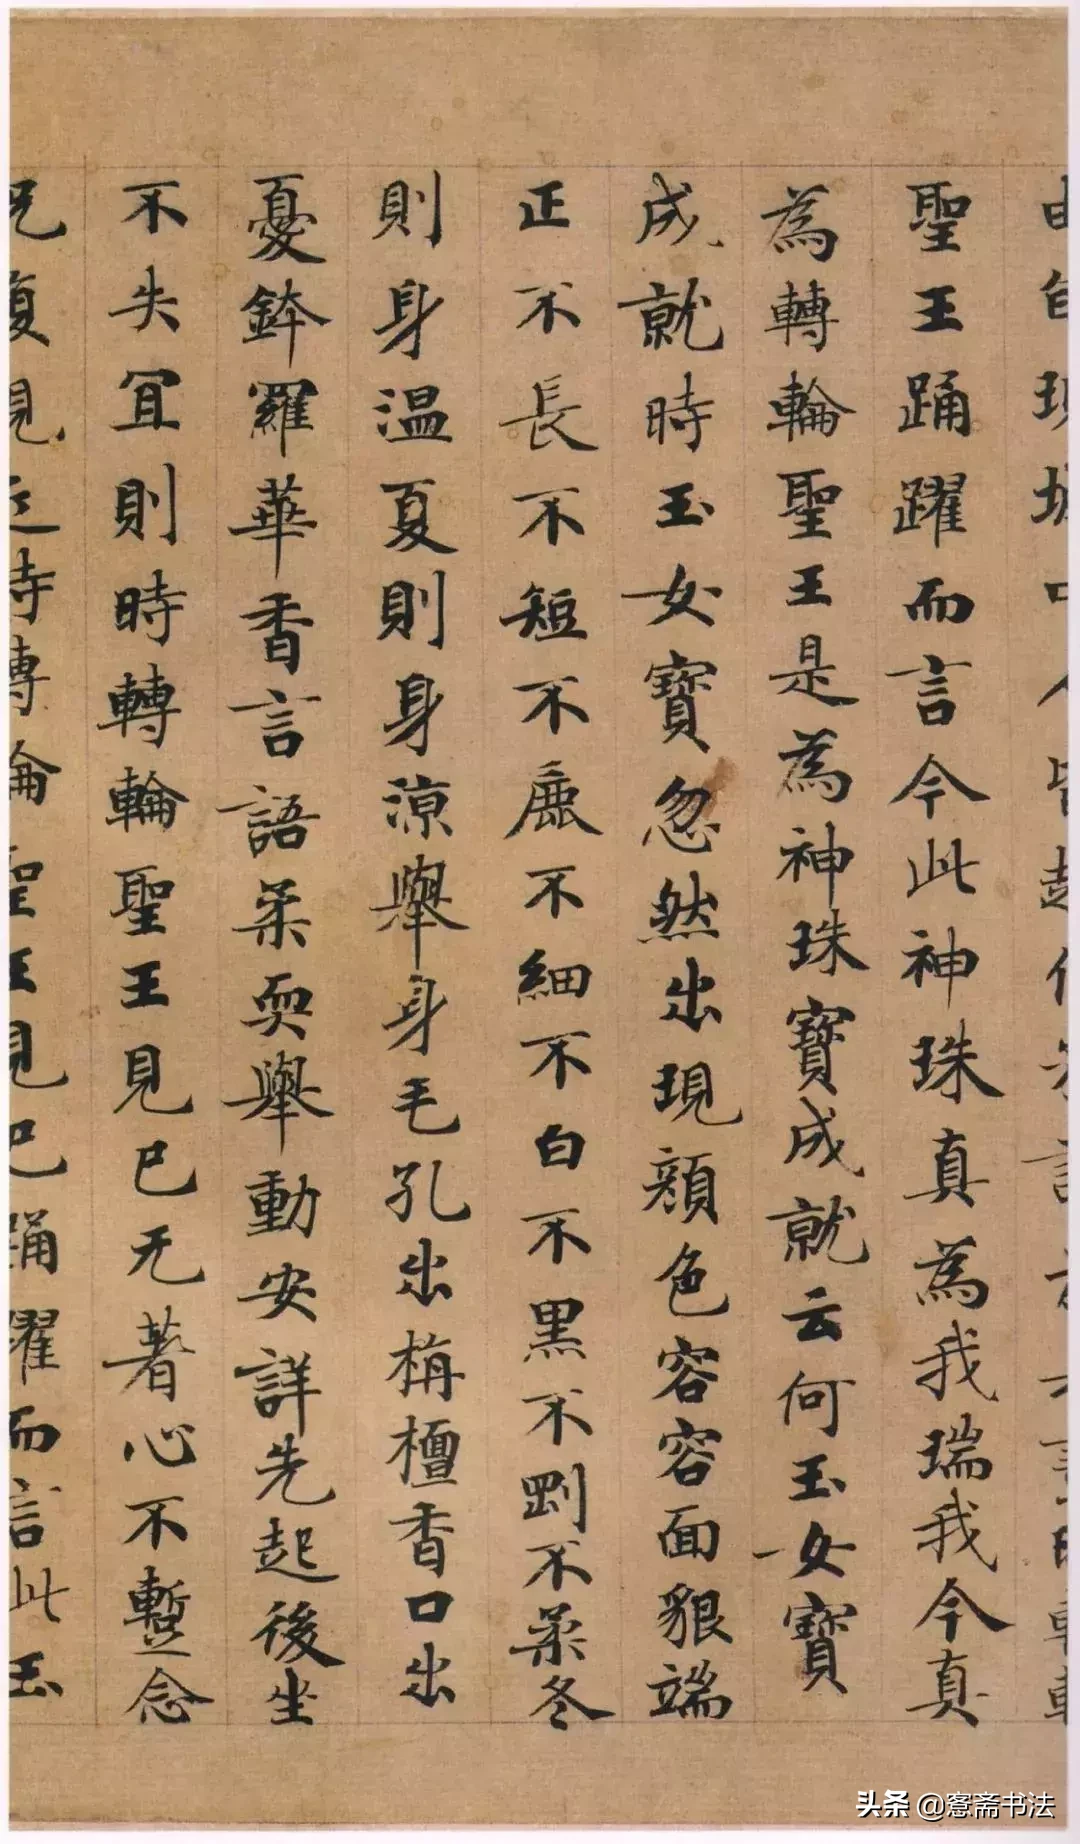 現城中人皆起作
聖王踊躍而言今此神珠真為我瑞我今真
為轉輪聖王是為神珠寶成就云何玉女寶
成就時玉女寶忽然出現顏色容容面貌端
正不長不短不麁不細不白不黑不剛不柔冬
則身温夏則身涼舉身毛孔出栴檀香口出
憂鉢羅華香言語柔耎舉動安詳先起後坐
不失宜則時轉輪聖王見已无著心不蹔念
況復親近時轉輪聖王見已踊躍而言此玉
头条 @愙斋书法